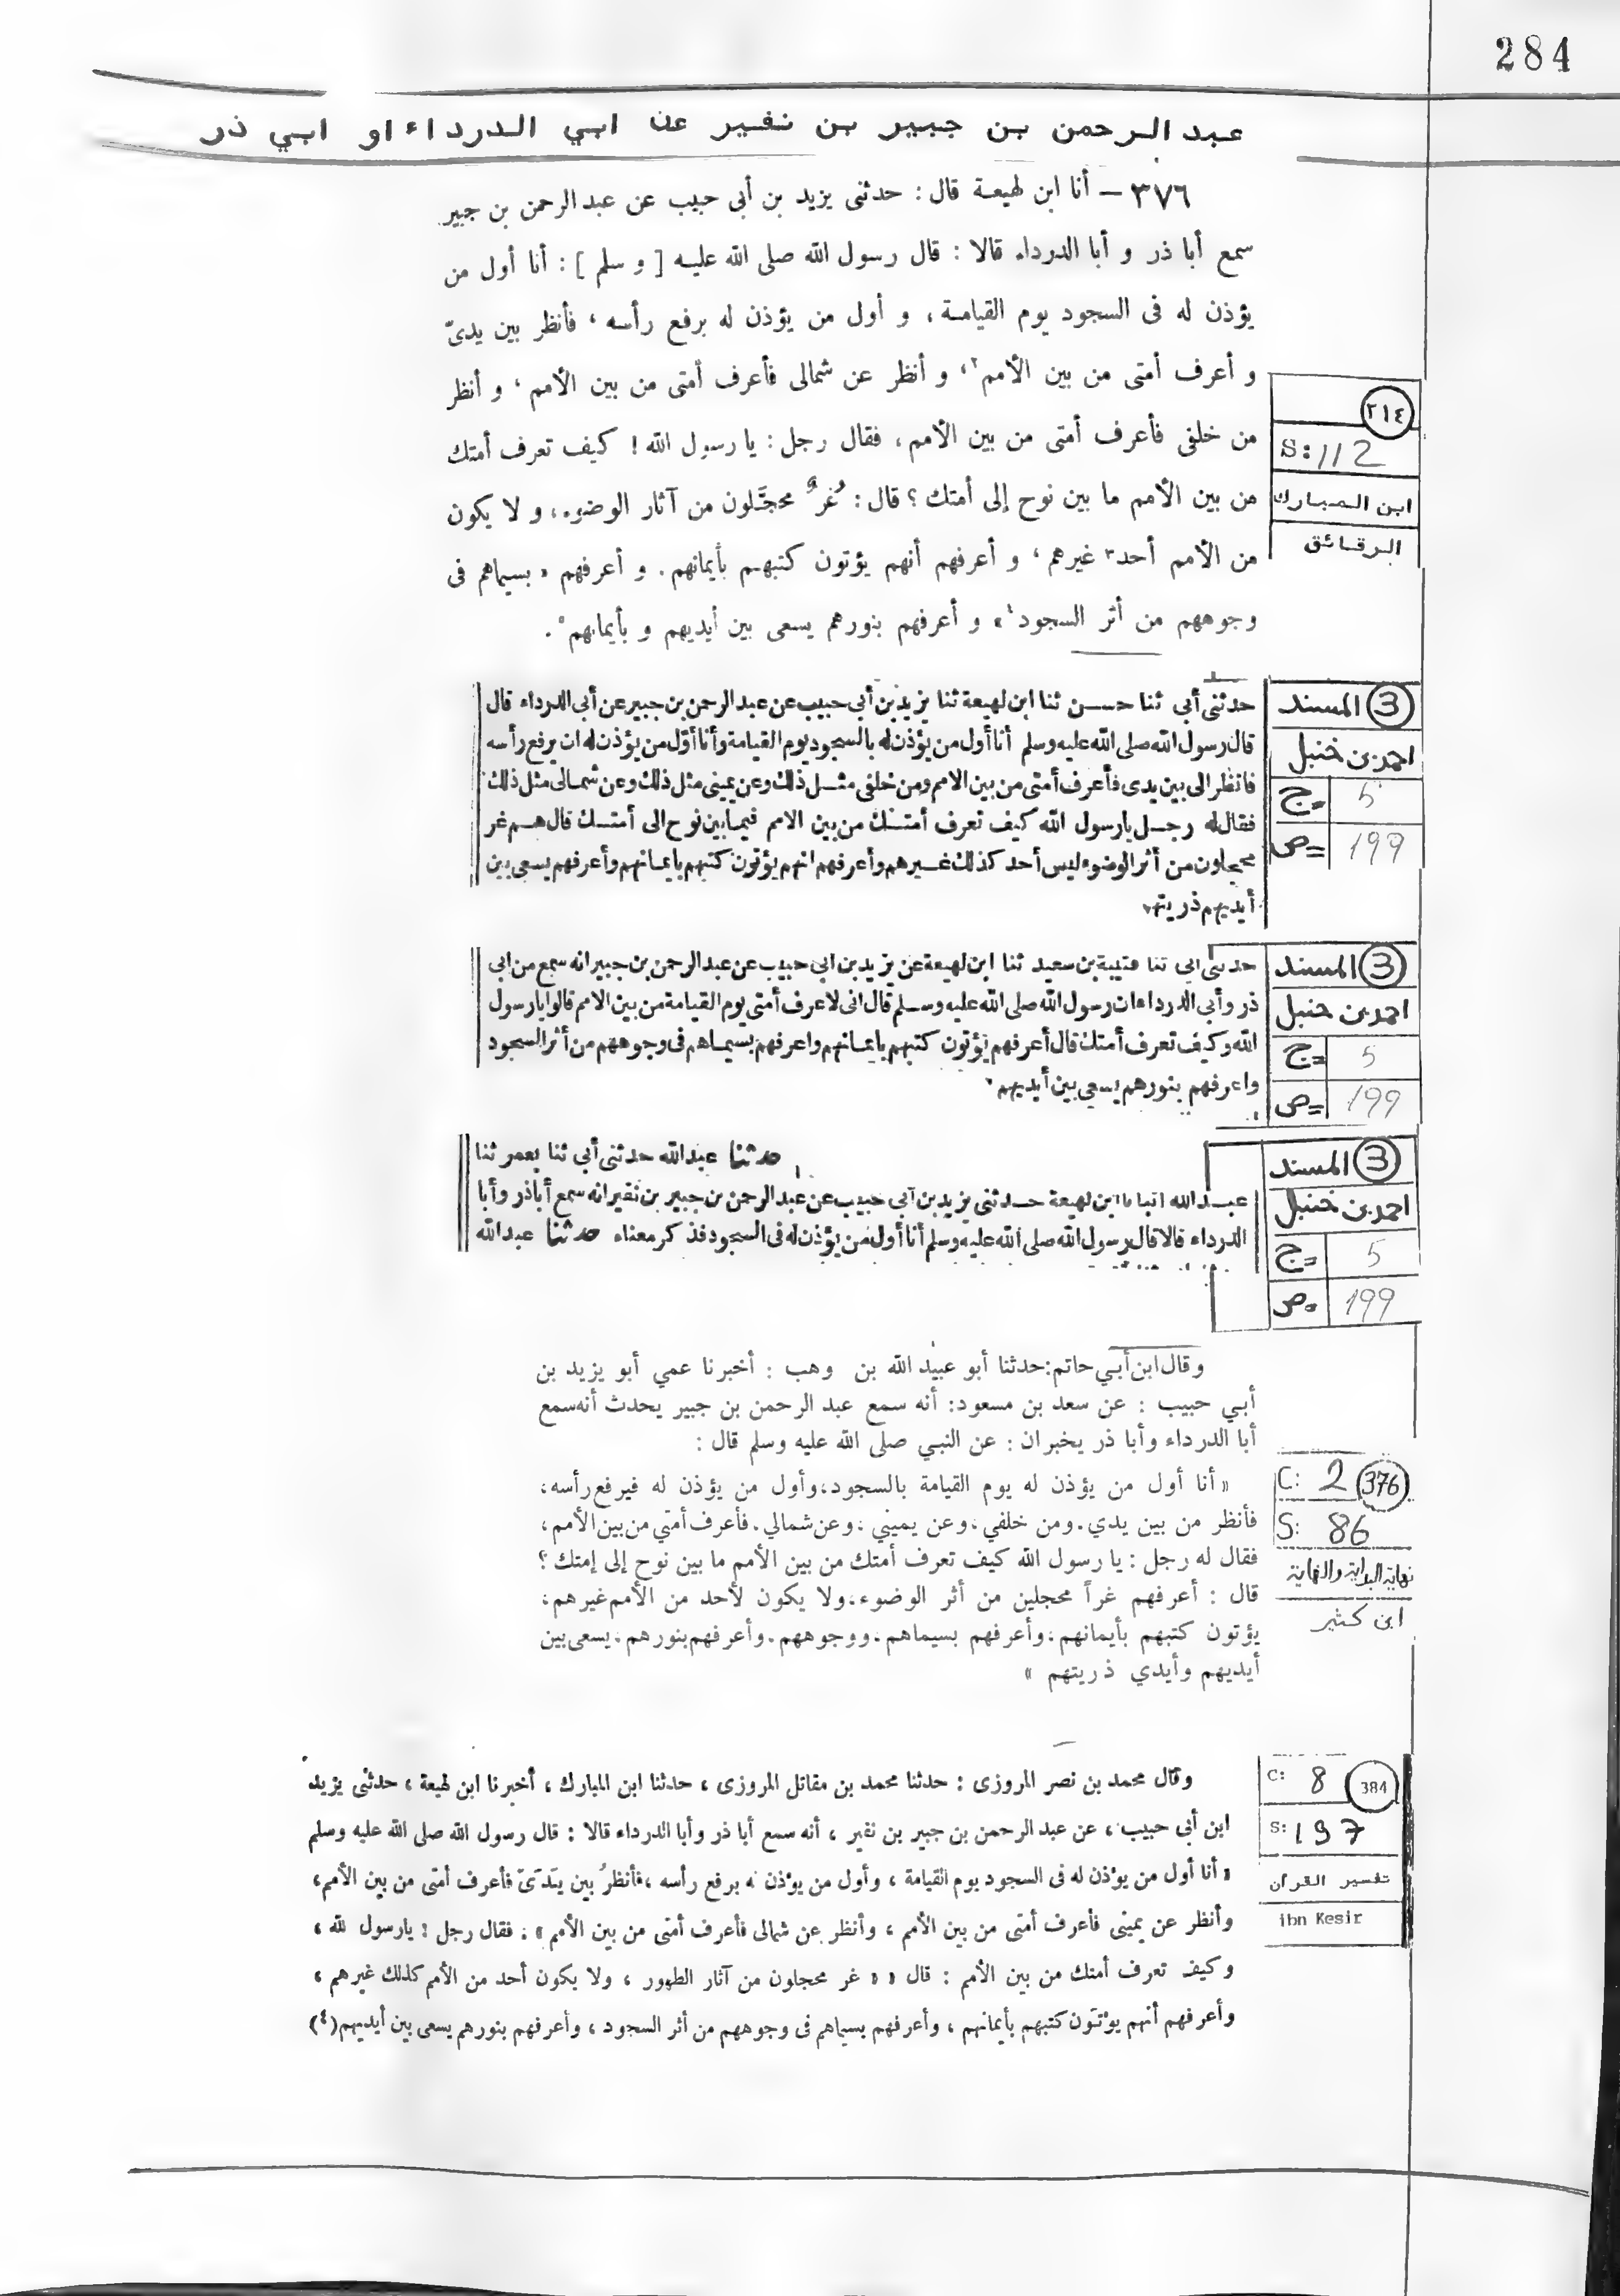 284
عبد الرحمن بن جبير بن نفير عن ابي الدرداء او ابي ذر
٣٧٦ – أنا ابن لهيعة قال : حدثنى يزيد بن أبى حبيب عن عبد الرحمن بن جبير
سمع أبا ذر و أبا الدرداء قالا : قال رسول الله صلى الله عليه [ و سلم ] : أنا أول من
يؤذن له فى السجود يوم القيامة ، و أول من يؤذن له برفع رأسه ، فأنظر بين يدىّ
و أعرف أمتى من بين الأمم٢ ، و أنظر عن شمالى فأعرف أمتى من بين الأمم ، و أنظر
من خلفى فأعرف أمتى من بين الأمم ، فقال رجل : يا رسول الله ! كيف تعرف أمتك
من بين الأمم ما بين نوح إلى أمتك ؟ قال : غُرٌّ محجَّلون من آثار الوضوء ، و لا يكون
من الأمم أحد٣ غيرهم ، و أعرفهم أنهم يؤتون كتبهم بأيمانهم . و أعرفهم « بسيماهم فى
وجوههم من أثر السجود٤ » و أعرفهم بنورهم يسعى بين أيديهم و بأيمانهم٥ .
٢١٤
S: 112
ابن المبارك
الرقائق
حدثنى أبى ثنا حسن ثنا ابن لهيعة ثنا يزيد بن أبى حبيب عن عبد الرحمن بن جبير عن أبى الدرداء قال
قال رسول الله صلى الله عليه وسلم أنا أول من يؤذن له بالسجود يوم القيامة وأنا أوّل من يؤذن له ان يرفع رأسه
فانظر الى بين يدى فأعرف أمتى من بين الامم ومن خلفى مثل ذلك وعن يمينى مثل ذلك وعن شمالى مثل ذلك
فقال له رجل يا رسول الله كيف تعرف أمتك من بين الامم فيما بين نوح الى أمتك قال هم غر
محجلون من أثر الوضوء ليس أحد كذلك غيرهم وأعرفهم انهم يؤتون كتبهم بايمانهم وأعرفهم يسعى بين
أيديهم ذريتهم
3 المسند
احمد بن حنبل
ج= 5
ص= 199
حدثنى ابى ثنا قتيبة بن سعيد ثنا ابن لهيعة عن يزيد بن ابى حبيب عن عبد الرحمن بن جبير انه سمع من ابى
ذر وأبي الدرداء ان رسول الله صلى الله عليه وسلم قال انى لاعرف أمتى يوم القيامة من بين الامم قالوا يا رسول
الله وكيف تعرف أمتك قال أعرفهم يؤتون كتبهم بايمانهم واعرفهم بسيماهم فى وجوههم من أثر السجود
واعرفهم بنورهم يسعى بين أيديهم
3 المسند
احمد بن حنبل
ج= 5
ص= 199
حدثنا عبد الله حدثنى أبي ثنا يعمر ثنا
عبد الله انبانا ابن لهيعة حدثنى يزيد بن أبى حبيب عن عبد الرحمن بن جبير بن نفير انه سمع أبا ذر وأبا
الدرداء قالا قال رسول الله صلى الله عليه وسلم أنا أول من يؤذن له فى السجود فذكر معناه حدثنا عبد الله
3 المسند
احمد بن حنبل
ج= 5
ص= 199
وقال ابن أبي حاتم : حدثنا أبو عبيد الله بن وهب : أخبرنا عمي أبو يزيد بن
أبي حبيب : عن سعد بن مسعود : أنه سمع عبد الرحمن بن جبير يحدث أنه سمع
أبا الدرداء وأبا ذر يخبران : عن النبي صلى الله عليه وسلم قال :
« أنا أول من يؤذن له يوم القيامة بالسجود ، وأول من يؤذن له فيرفع رأسه ،
فأنظر من بين يدي . ومن خلفي . وعن يميني . وعن شمالي . فأعرف أمتي من بين الأمم ،
فقال له رجل : يا رسول الله كيف تعرف أمتك من بين الأمم ما بين نوح إلى إمتك ؟
قال : أعرفهم غراً محجلين من أثر الوضوء . ولا يكون لأحد من الأمم غيرهم ،
يؤتون كتبهم بأيمانهم ، وأعرفهم بسيماهم . ووجوههم . وأعرفهم بنورهم . يسعى بين
أيديهم وأيدي ذريتهم »
C: 2 376
S: 86
نهاية البداية والنهاية
ابن كثير
وقال محمد بن نصر المروزى : حدثنا محمد بن مقاتل المروزى ، حدثنا ابن المبارك ، أخبرنا ابن لهيعة ، حدثنى يزيد
ابن أبى حبيب ، عن عبد الرحمن بن جبير بن نفير ، أنه سمع أبا ذر وأبا الدرداء قالا : قال رسول الله صلى الله عليه وسلم
« أنا أول من يؤذن له فى السجود يوم القيامة ، وأول من يؤذن له برفع رأسه ، فأنظرُ بين يَدَىّ فأعرف أمتى من بين الأمم ،
وأنظر عن يمينى فأعرف أمتى من بين الأمم ، وأنظر عن شمالى فأعرف أمتى من بين الأمم » . فقال رجل : يا رسول الله ،
وكيف تعرف أمتك من بين الأمم : قال « « غر محجلون من آثار الطهور ، ولا يكون أحد من الأمم كذلك غيرهم ،
وأعرفهم أنهم يؤتون كتبهم بأيمانهم ، وأعرفهم بسيماهم فى وجوههم من أثر السجود ، وأعرفهم بنورهم يسعى بين أيديهم (٤)
C: 8 384
S: 197
تفسير القرآن
ibn Kesir